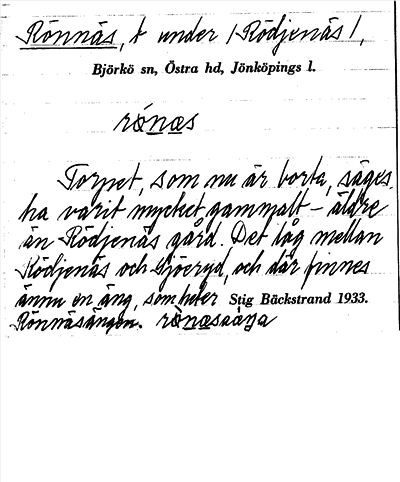 Rönnäs, t under /Rödjenäs/,
Björkö sn, Östra hd, Jönköpings l.
rónæs
Torpet, som nu är borta, säges
ha varit mycket gammalt – äldre
än Rödjenäs gård. Det låg mellan
Rödjenäs och Sjöeryd, och där finnes
ännu en äng, som heter Stig Bäckstrand 1933.
Rönnäsängen.